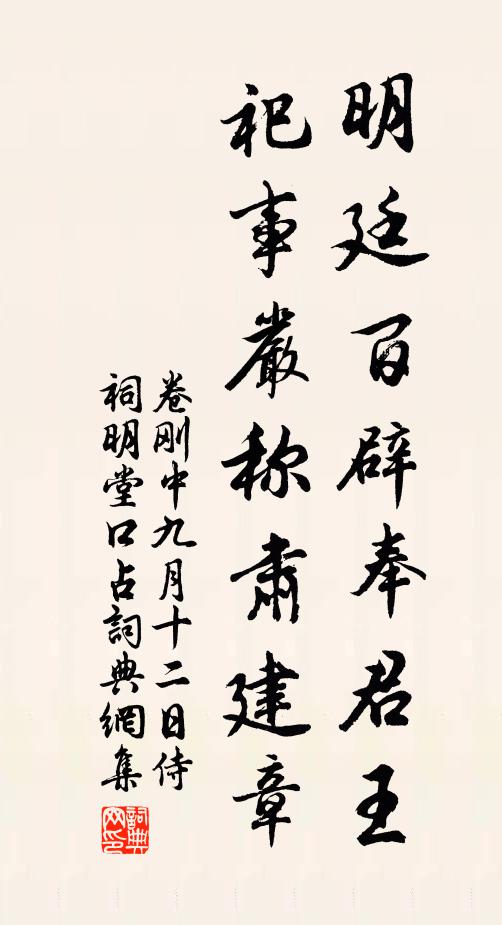 明廷百辟奉君王
祀事嚴称肅建章
卷刚中九月十二日侍
祠明堂口占詞典網集
詞典
网印